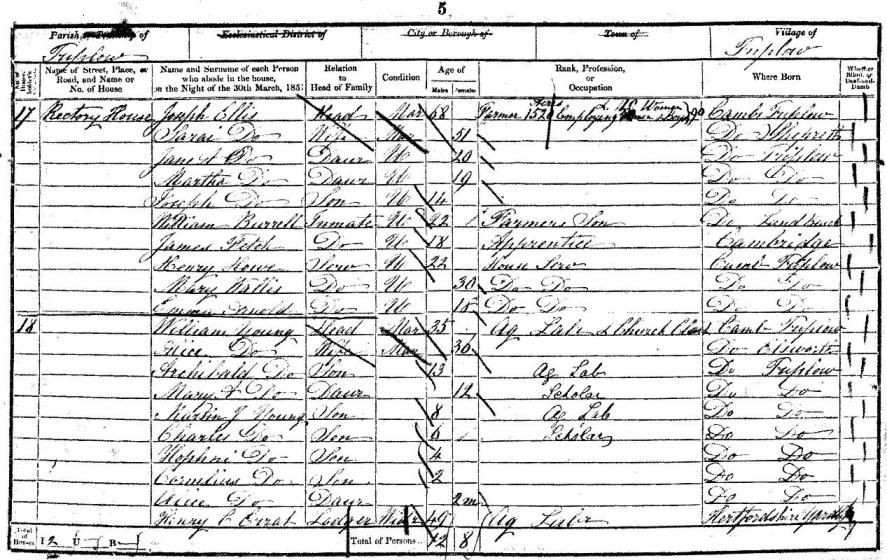 5
Parish or Township of
Ecclesiastical District of
City or Borough of
Town of
Village of
Triplow
Triplow
Name of Street, Place, or Road, and Name or No. of House
Name and Surname of each Person who abode in the house, on the Night of the 30th March, 1851
Relation to Head of Family
Condition
Age of
Males
Females
Rank, Profession, or Occupation
Where Born
Whether Blind, or Deaf-and-Dumb
17 Rectory House Joseph Ellis Head Mar 68 Farmer 1520 Acres Employing Women & Boys Cambs Triplow
Sarai Do Wife Mar 51 Do
Janet Do Daur U 20 Do Triplow
Martha Do Daur U 19 Do Do
Joseph Do Son U 14 Do Do
William Burrell Inmate U 22 Farmers Son Do Landbeach
James Fetch Do U 18 Apprentice Cambridge
Henry Howe Serv U 22 Houn Serv Camb Triplow
Mary Wallis Do U 30 Do Do Do Do
Emma Do U 18 Do Do Do Do
18 William Young Head Mar 35 Ag Lab & Church Camb Triplow
Alice Do Wife Mar 36 Do Elsworth
Archibald Do Son 13 Ag Lab Do Triplow
Mary Do Daur 12 Scholar Do Do
J Young Son 8 Ag Lab Do Do
Charles Do Son 6 Scholar Do Do
Hophni Do Son 4 Do Do
Cornelius Do Son 2 Do Do
Alice Do Daur 2m Do Do
Henry C Lodger Widr 49 Ag Hertfordshire
Total of Houses 12 U B Total of Persons 12 8